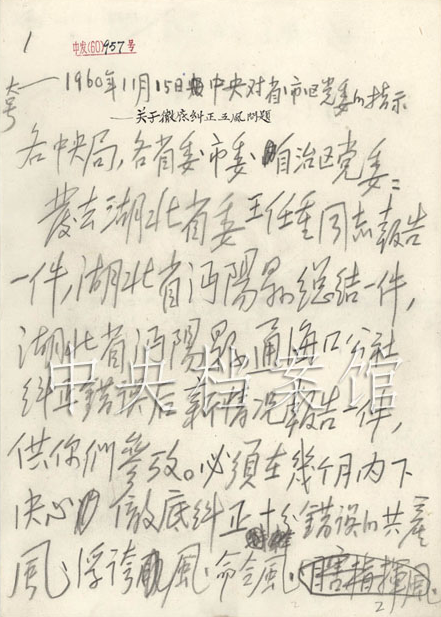 1
中发(60)957号
大号
1960年11月15日中央对省市区党委的指示
——关于彻底纠正五风问题
各中央局,各省委、市委、自治区党委:
发去湖北省委王任重同志報告
一件,湖北省沔陽县总结一件,
湖北省沔陽县通海口公社
纠正錯误后新情况報告一件,
供你們參攷。必須在幾个月内下
决心徹底纠正十分錯误的共產
風、浮誇風、命令風、
瞎指揮風、
2
中央档案馆